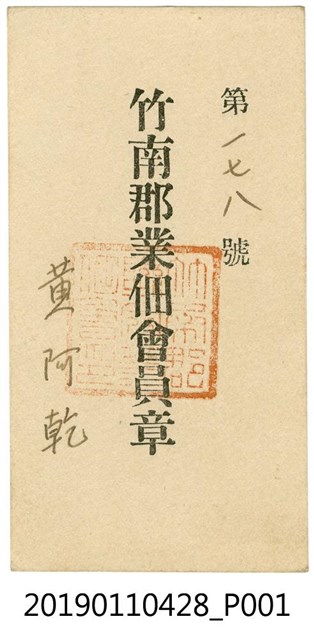 第一七八號
竹南郡業佃會員章
黃阿乾
20190110428_P001